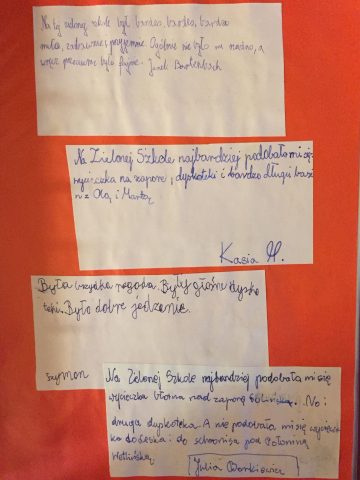 Na tej zielonej szkole był bardzo, bardzo, bardzo
miło, zabawnie i przyjemnie. Ogólnie nie było m nudno, a
wręcz przeciwnie było fajnie.
Na Zielonej Szkole najbardziej podobało mi się:
wycieczka na zaporę, dyskoteki i bardzo długi basi
n z Olą i Martą
Kasia H.
Była brzydka pogoda. Były głośne dysko
teki. Było dobre jedzenie.
Szymon
Na Zielonej Szkole najbardziej podobała mi się
wycieczka Błotna nad zaporę Solińską. No i
druga dyskoteka. A nie podobała mi się wyciecz
ka do Leska i do schroniska pod Połoniną
Wetlińską.
Julia